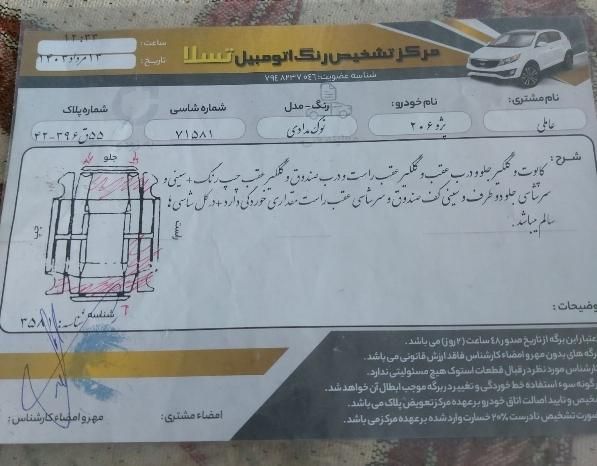 مرکز تشخیص رنگ اتومبیل تسلا
شناسه عضویت: ۷۹۴۸۲۳۷۰۴۶
ساعت: ۱۲:۴۴
تاریخ: ۱۳ مرداد ۱۴۰۳
نام مشتری:
نام خودرو:
رنگ - مدل
شماره شاسی:
شماره پلاک
عاملی
پژو ۲۰۶
نوک مدادی
۷۱۵۸۱
۵۵ق۳۹۶-۴۲
شرح:
کاپوت و گلگیر جلو و درب عقب و گلگیر عقب راست و درب صندوق و گلگیر عقب چپ رنگ + سینی و
سرشاسی جلو دو طرف و سینی کف صندوق و سرشاسی عقب راست مقداری خوردگی دارد + در کل شاسی ها
سالم میباشد.
جلو
چپ
راست
شناسه
شناسه: ۳۵۸۱
توضیحات:
اعتبار این برگه از تاریخ صدور ۴۸ ساعت (۲ روز) می باشد.
برگه های بدون مهر و امضاء کارشناس فاقد ارزش قانونی می باشد.
کارشناس مورد نظر در قبال قطعات استوک هیچ مسئولیتی ندارد.
هرگونه سوء استفاده خط خوردگی و تغییر در برگه موجب ابطال آن خواهد شد.
تشخیص و تایید اصالت اتاق خودرو بر عهده مرکز تعویض پلاک می باشد.
صورت تشخیص نادرست ۲۰% خسارت وارد شده بر عهده مرکز می باشد.
امضاء مشتری:
مهر و امضاء کارشناس: